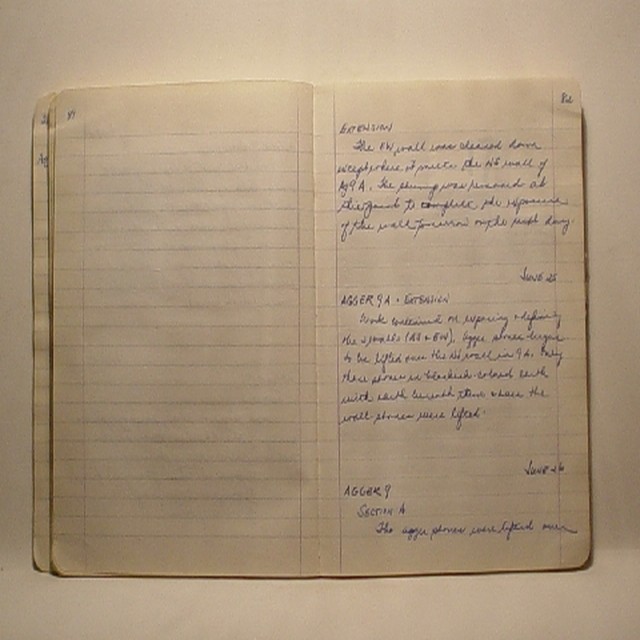 81
82
EXTENSION
The EW wall was cleared down
except where it meets the NS wall of
Ag 9 A. The shoring was removed at
this point to complete the exposure
of the wall tomorrow or the next day.
JUNE 25
AGGER 9A - EXTENSION
Work continued on exposing & defining
the 2 walls (NS & EW). Agger stones began
to be lifted over the NS wall in 9A.
these stones in blackish colored earth
with earth beneath them where the
wall stones were lifted.
JUNE 26
AGGER 9
SECTION A
The agger stones were lifted over